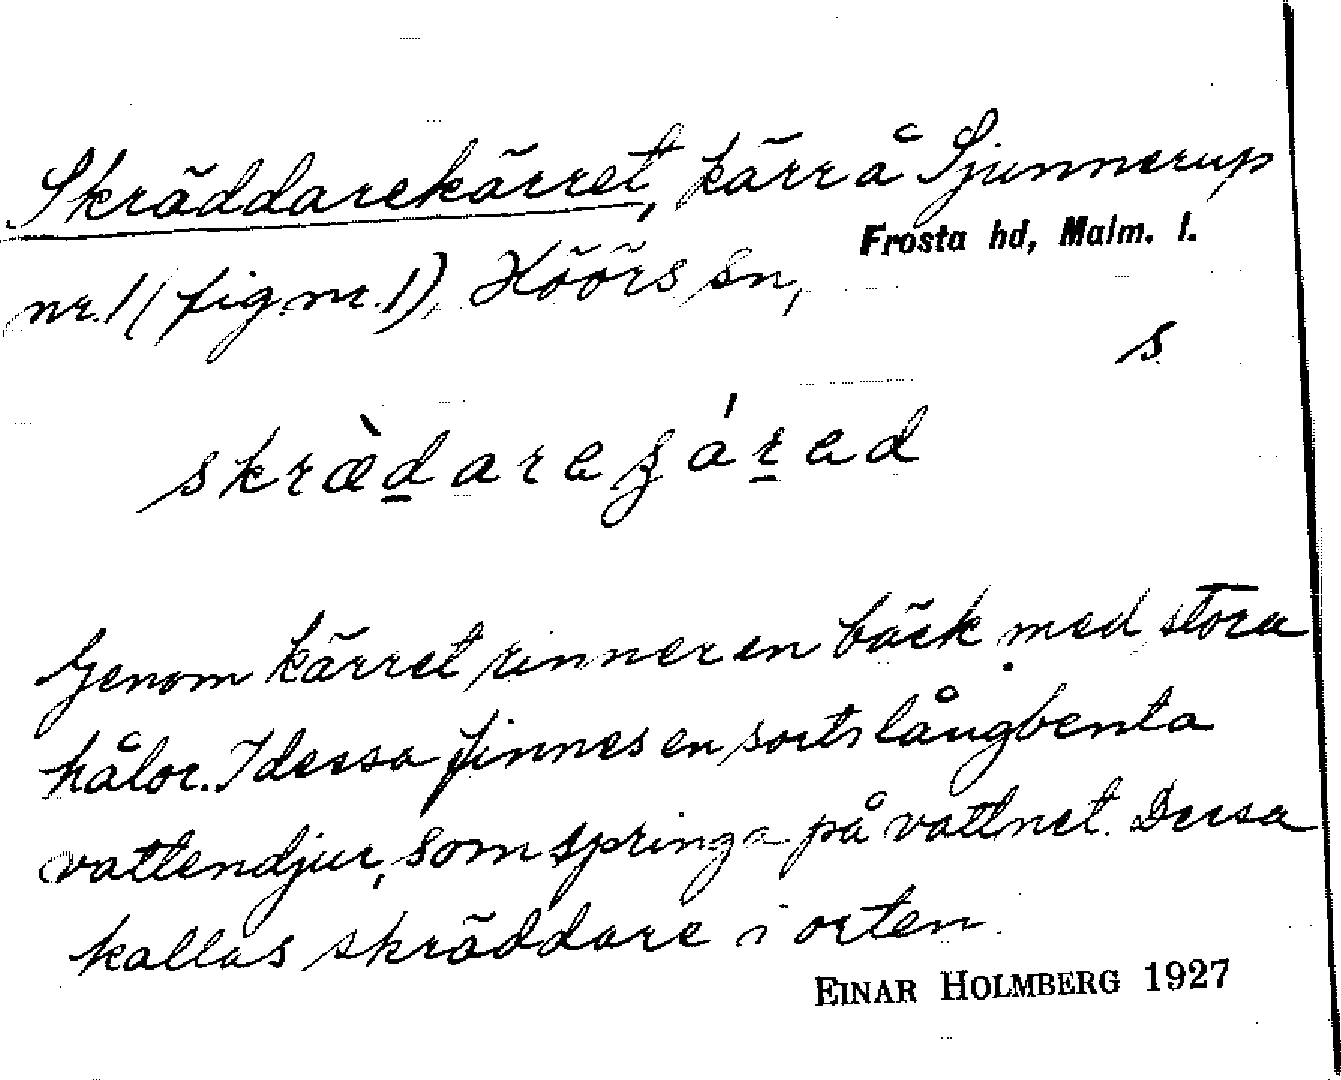 Skräddarekärret, kärr å Sjunnerup
Frosta hd, Malm. l.
nr. 1 (fig. nr. 1), Höörs sn,
s
Genom kärret rinner en bäck med stora
hålor. I dessa finnes en sorts långbenta
vattendjur, som springa på vattnet. Dessa
kallas skräddare i orten.
EINAR HOLMBERG 1927